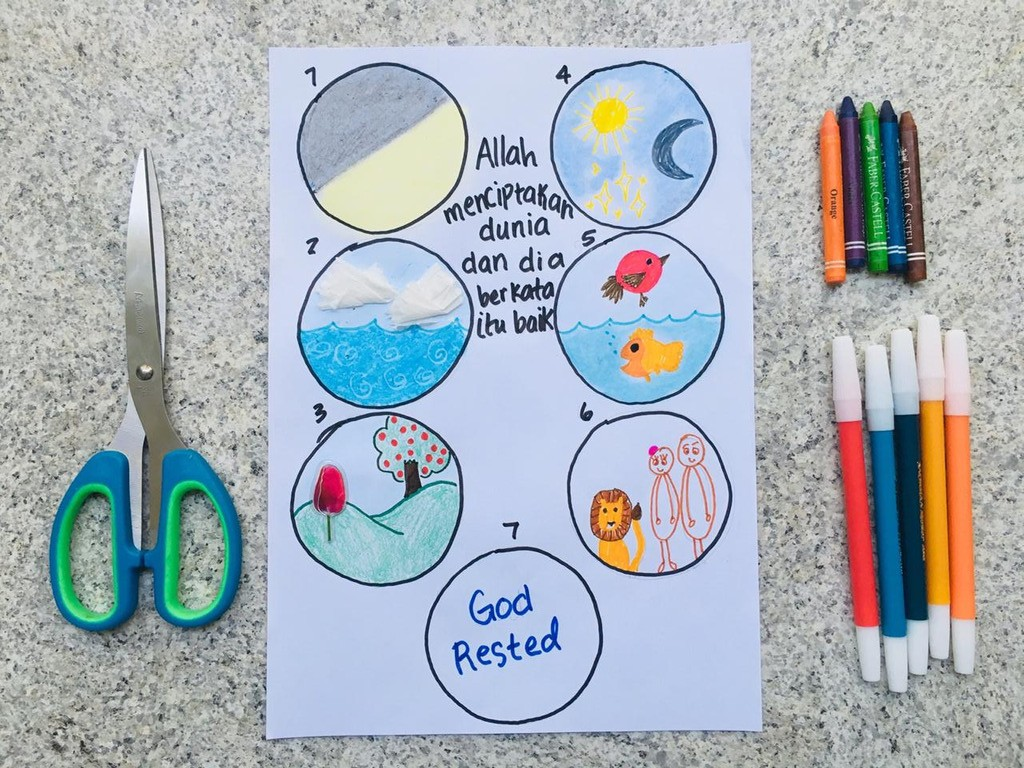 1
4
Allah
menciptakan
dunia
dan dia
berkata
itu baik
2
5
3
6
7
God
Rested
Orange
FABER-CASTELL
FABER CASTELL